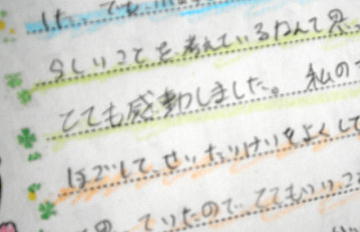 した。でも
らしいことを考えているなんて思っ
とても感動しました。 私の
ほごして、せいたいけいをよくして
ていたので、とてもいいこ